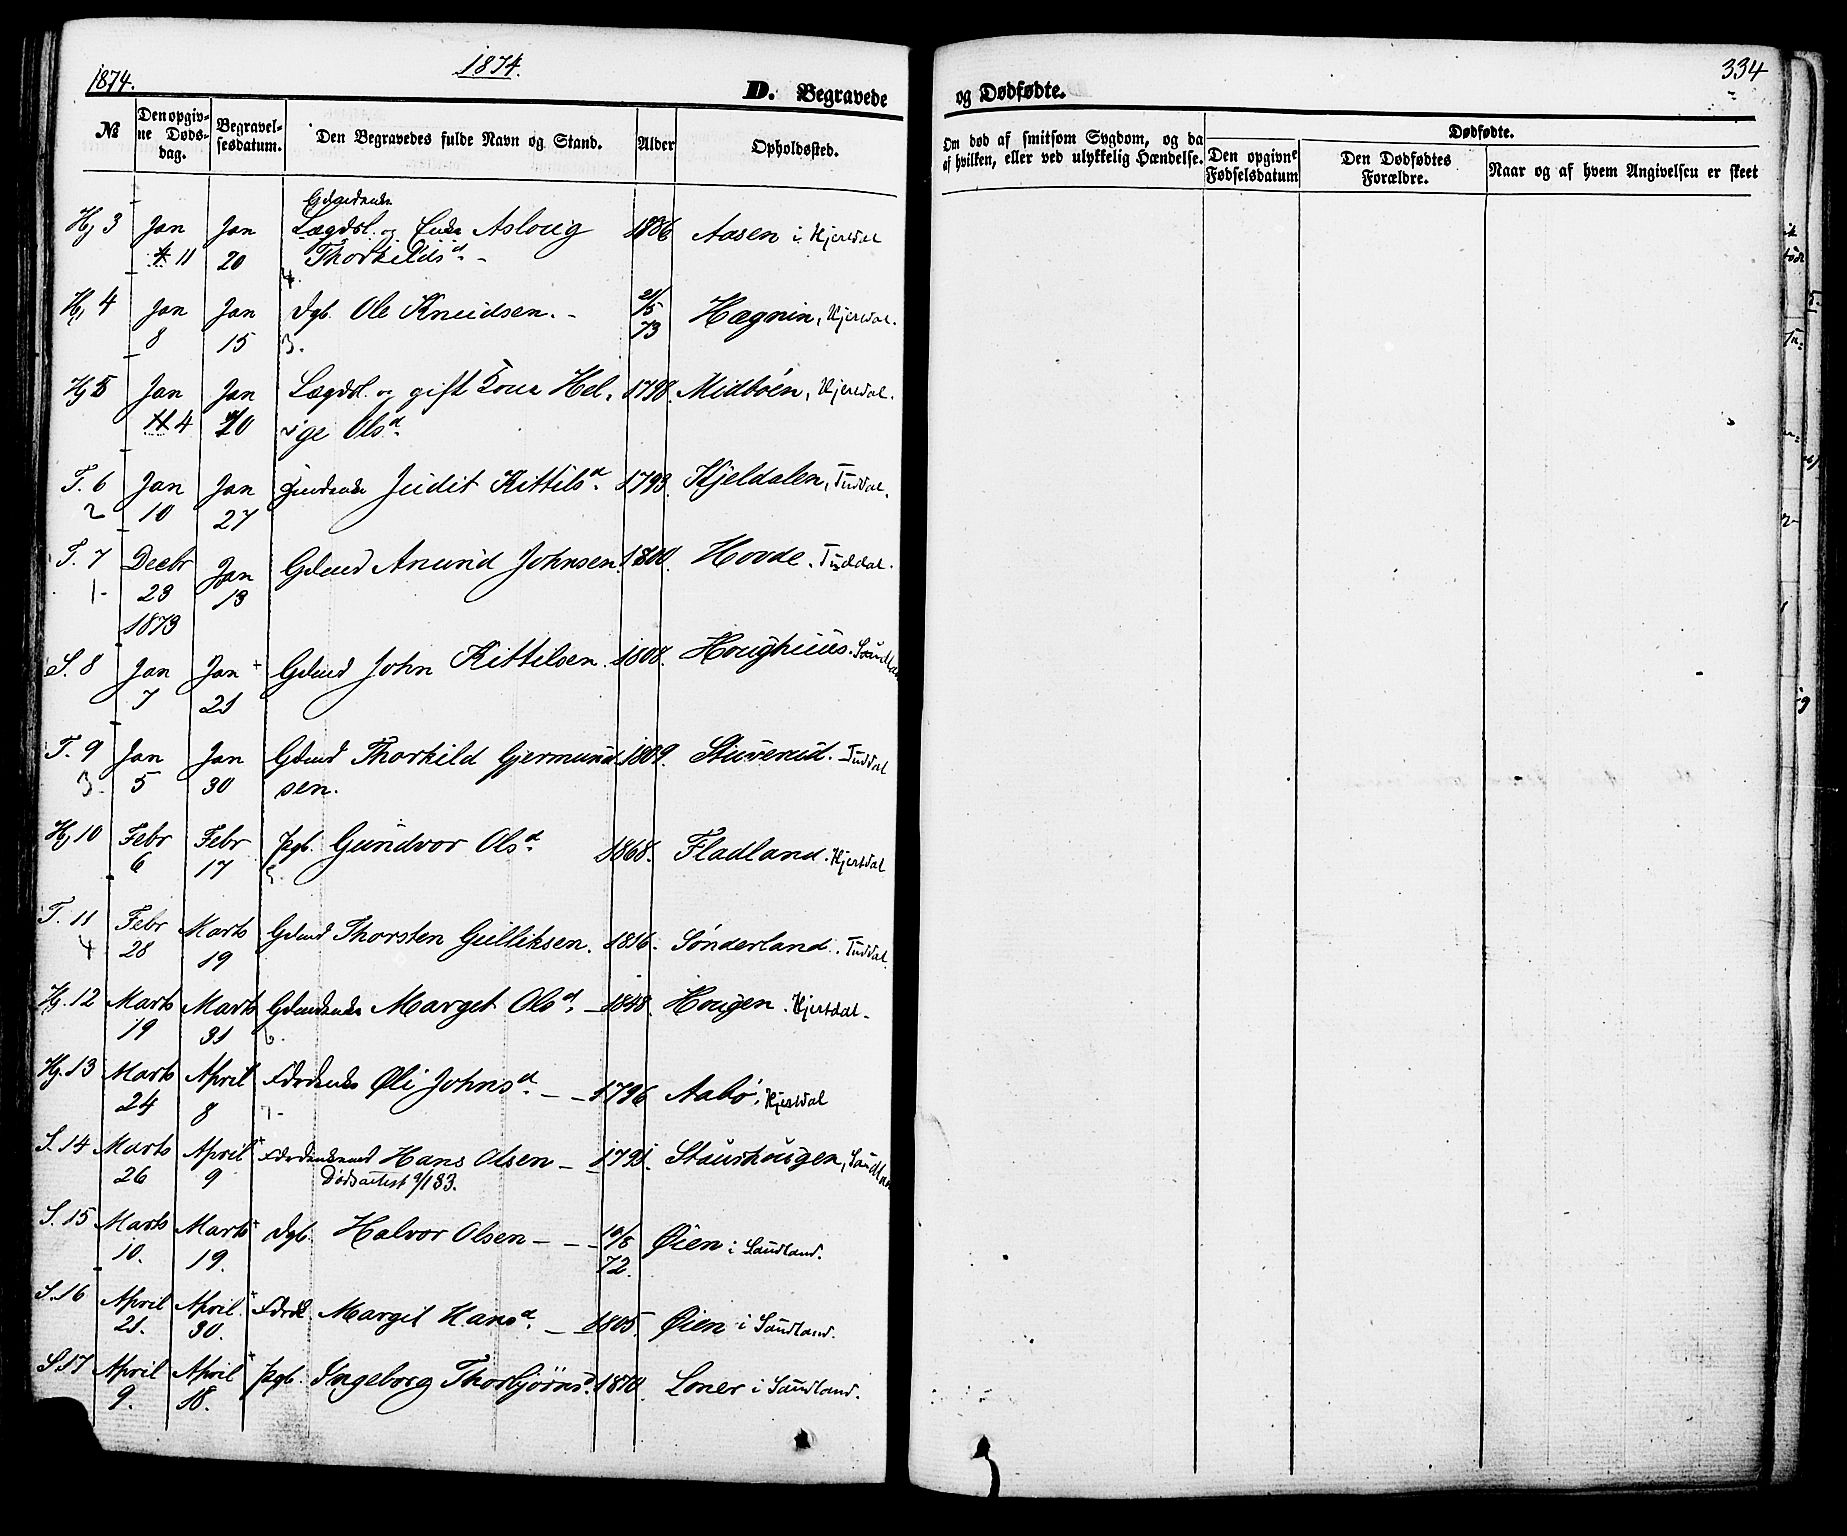 1874.
1874.
D. Begravede
og Dødfødte.
334
№
Den opgiv-
ne Døds-
dag.
Begravel-
sesdatum.
Den Begravedes fulde Navn og Stand.
Alder
Opholdssted.
Om død af smitsom Sygdom, og da
af hvilken, eller ved ulykkelig Hændelse.
Dødfødte.
Den opgivne
Fødselsdatum
Den Dødfødtes
Forældre.
Naar og af hvem Angivelsen er skeet
Hj 3 Jan 11 Jan 20 Lægdsl. og Enke Asloug 1836 Aasen i Hjertdal
Thorkildsd.
4.
Hj 4 Jan 8 Jan 15 Dgb. Ole Knudsen. 21/5 73 Hægnin, Hjertdal.
3.
Hj 5 Jan 4 Jan 20 Lægdsl. og gift Kone Hel- 1798. Midbøen, Hjertdal.
ge Olsd.
T. 6 Jan 10 Jan 27 Judit Kittilsd. 1793. Kjeldalen, Tuddal.
2
T. 7 Decbr 23 1873 Jan 13 Gdmd Anund Johnsen. 1800. Hovde. Tuddal.
1-
S. 8 Jan 7 Jan 21 + Gdmd John Kittilsen. 1808. Houghuus. Saudland
T. 9 Jan 5 Jan 30 Gdmd Thorkild Gjermund 1809. Stuverud. Tuddal
3. sen.
Hj 10 Febr 6 Febr 17 Pgb. Gundvor Olsd. 1868. Fladland. Hjertdal
5.
T. 11 Febr 28 Marts 19 Gdmd Thorsten Gulliksen. 1816. Sønderland. Tuddal.
4
Hj. 12 Marts 19 Marts 31 Gdmdenke Marget Olsd. 1848. Hougen. Hjertdal.
6.
Hj. 13 Marts 24 April 8 Fdrdenke Øli Johnsd. 1796 Aabø, Hjertdal
7-
S. 14 Marts 26 April 9 + Hans Olsen 1791. Staurhougen, Saudland
Dødsattest 9/1 83.
S. 15 Marts 10. Marts 19. + Dgb. Halvor Olsen 10/6 72. Øien i Saudland.
S. 16 April 21. April 30. + Fdrdk. Margit Hansd. 1805. Øien i Saudland.
S. 17 April 9. April 18. + Pgb. Ingeborg Thorbjørnsd. 1870. Loner i Saudland.